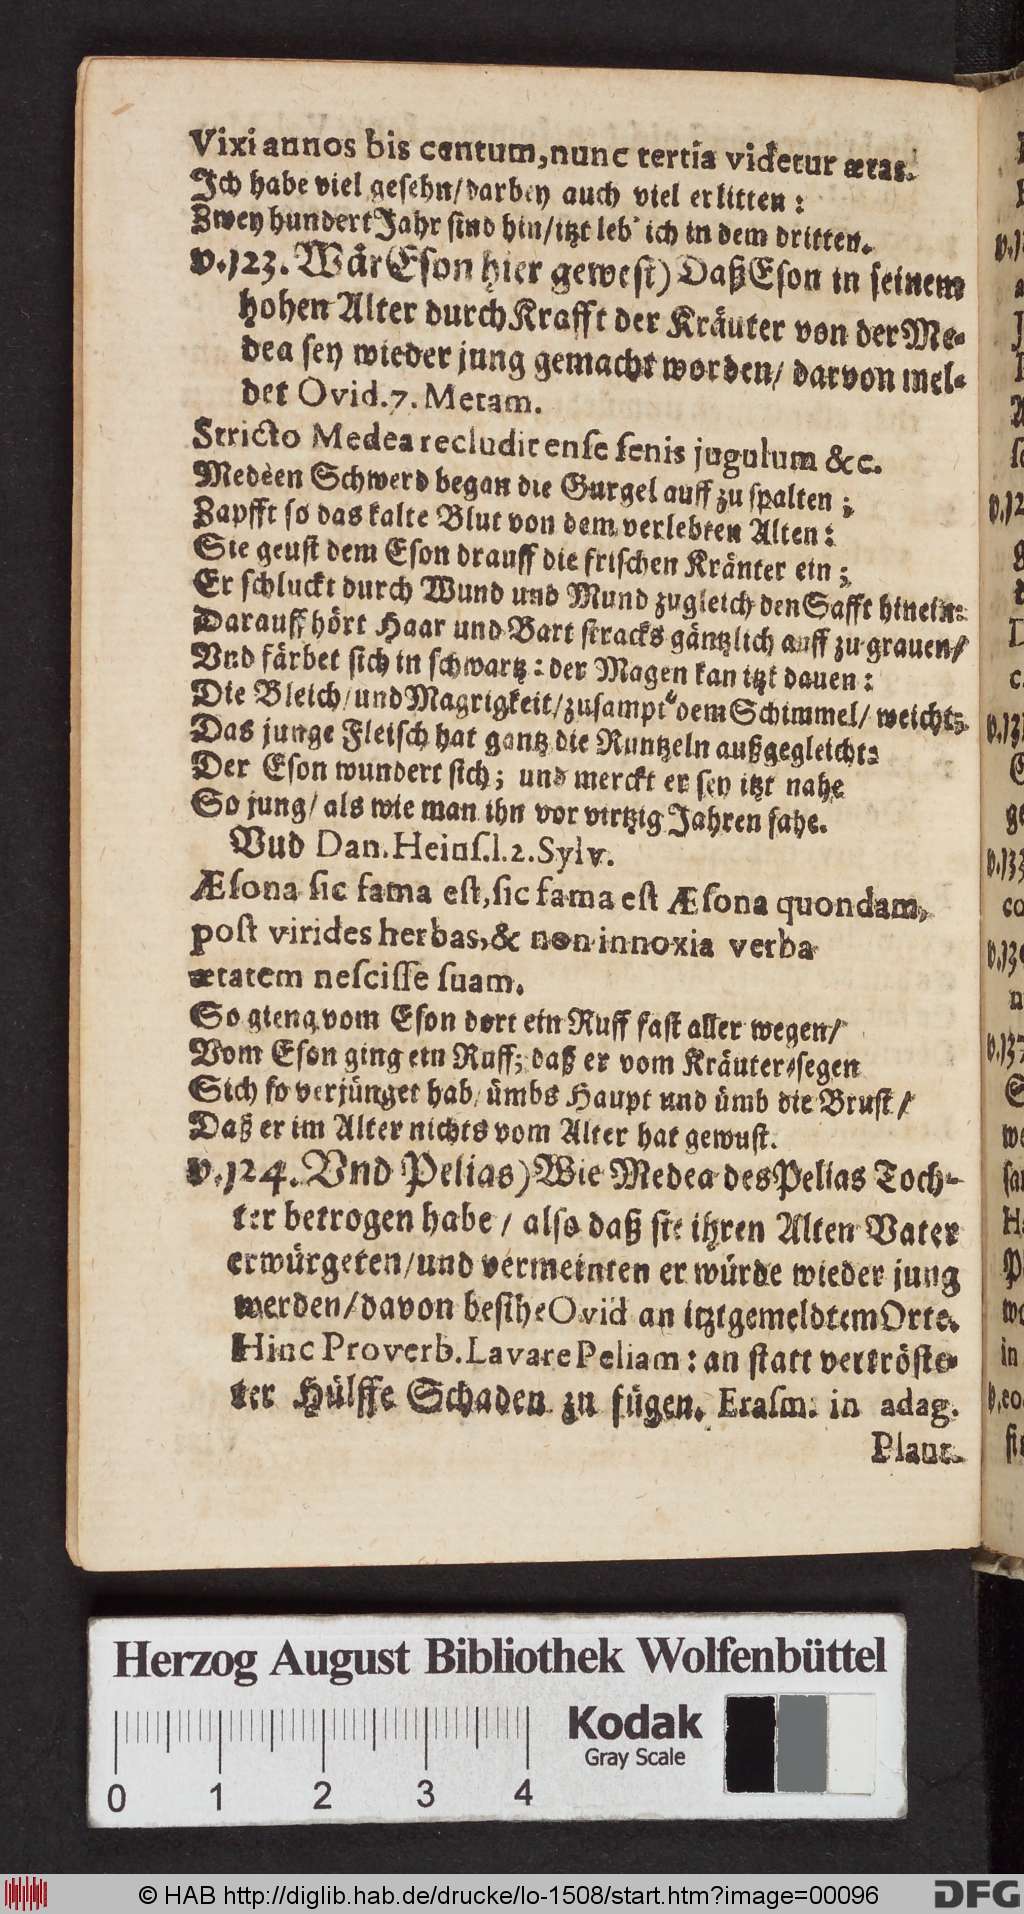 Vixi annos bis centum, nunc tertia videtur ætas.
Ich habe viel gesehn/ darbey auch viel erlitten:
Zwey hundert Jahr sind hin/ itzt leb' ich in dem dritten.
v.123. Wär Eson hier gewest) Daß Eson in seinem
hohen Alter durch Krafft der Kräuter von der Me-
dea sey wieder jung gemacht worden/ darvon mel-
det Ovid. 7. Metam.
Stricto Medea recludit ense senis jugulum &c.
Medeen Schwerd began die Gurgel auff zu spalten;
Zapfft so das kalte Blut von dem verlebten Alten:
Sie geust dem Eson drauff die frischen Kränter ein;
Er schluckt durch Wund und Mund zugleich den Safft hinein:
Darauff hört Haar und Bart stracks gäntzlich auff zu grauen/
Vnd färbet sich in schwartz: der Magen kan itzt dauen:
Die Bleich/ und Magrigkeit/ zusampt dem Schimmel/ weicht;
Das junge Fleisch hat gantz die Runtzeln außgegleicht:
Der Eson wundert sich; und merckt er sey itzt nahe
So jung/ als wie man ihn vor virtzig Jahren sahe.
Vud Dan. Heinſ. l. 2. Sylv.
Æſona ſic fama eſt, ſic fama eſt Æſona quondam,
poſt virides herbas, & non innoxia verba
ætatem neſciſſe ſuam.
So gieng vom Eson dort ein Ruff fast aller wegen/
Vom Eson ging ein Ruff; daß er vom Kräuter-segen
Sich so verjünget hab/ ümbs Haupt und ümb die Brust/
Daß er im Alter nichts vom Alter hat gewust.
v.124. Vnd Pelias) Wie Medea des Pelias Toch-
ter betrogen habe/ also daß sie ihren Alten Vater
erwürgeten/ und vermeinten er würde wieder jung
werden/ davon besihe Ovid an itztgemeldtem Orte.
Hinc Proverb. Lavare Peliam: an statt vertröste-
ter Hülffe Schaden zu fügen. Eraſm. in adag.
Plaut.
Herzog August Bibliothek Wolfenbüttel
Kodak
Gray Scale
0 1 2 3 4
© HAB http://diglib.hab.de/drucke/lo-1508/start.htm?image=00096
DFG